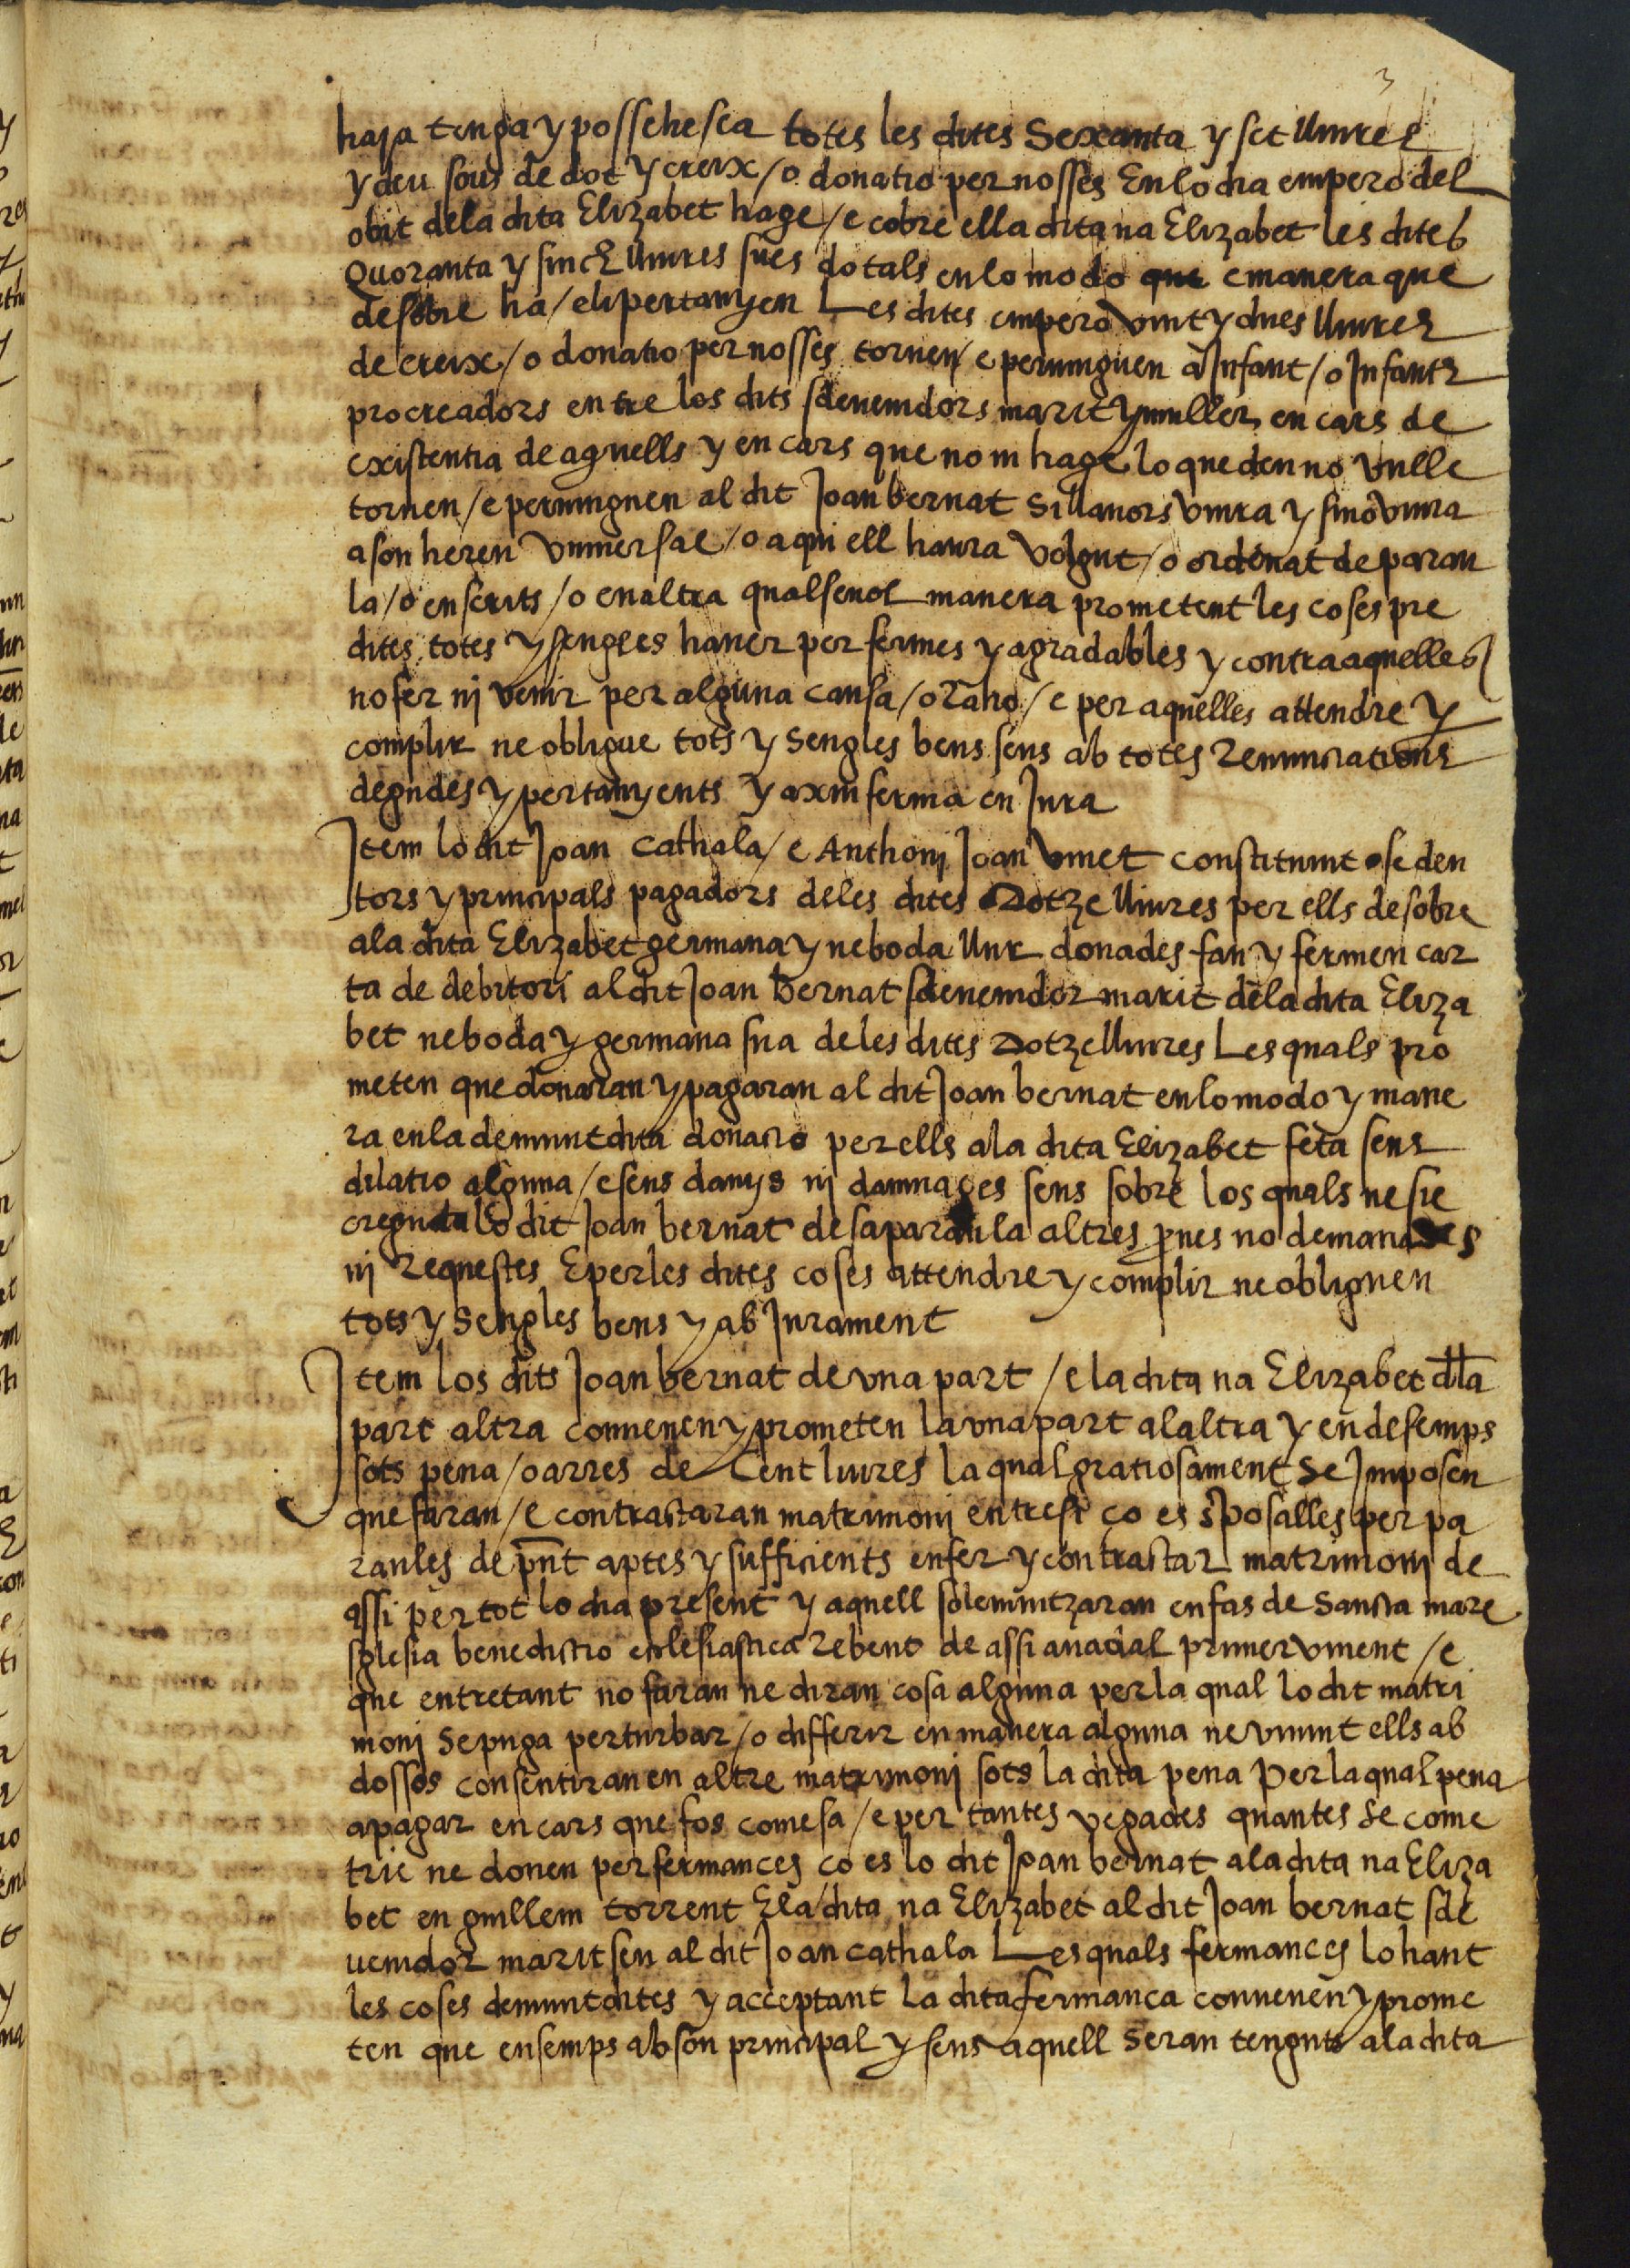 3
haja tenga y possehesca totes les dites Sexanta y set lliures
y deu sous de dot y creix / o donatio per nosses En lo dia empero del
obit dela dita Elizabet hage / e cobre ella dita na Elizabet les dites
Quoranta y sinch lliures sues dotals en lo modo que e manera que
desobre ha / e li pertanyen Les dites empero vint y dues lliures
de creix / o donatio per nosses tornen / e pervinguen a Infant / o Infants
procreadors entre los dits sdevenidors marit y muller en cars de
existentia de aquells y en cars que no ni hage lo que deu no vulle
tornen / e pervinguen al dit Joan bernat si llauors viura y sino viura
a son hereu vniuersal / o a qui ell haura volgut / o ordenat de parau
la / o en scrits / o en altra qualseuol manera prometent les coses pre
dites totes y sengles hauer per fermes y agradables y contra aquelles
no fer nj venir per alguna causa / o ratio / e per aquelles attendre y
complir ne obligue tots y sengles bens seus ab totes renuntiations
degudes y pertanyents y axi u ferma en Jura
Item lo dit Joan Cathala / e Anthonj Joan viuet constituint se deu
tors y principals pagadors deles dites Dotze lliures per ells desobre
ala dita Elizabet germana y neboda llur donades fan y fermen car
ta de debitori al dit Joan bernat sdeuenidor marit dela dita Eliza
bet neboda y germana sua deles dites dotze lliures Les quals pro
meten que donaran y pagaran al dit Joan bernat en lo modo y mane
ra en la demunt dita donatio per ells a la dita Elizabet feta sens
dilatio alguna / e sens danys nj damnages seus sobre los quals ne sie
cregut lo dit Joan bernat de sa paraula altres p̱nes no demanades
nj requestes E per les dites coses attendre y complir ne obliguen
tots y sengles bens y ab Jurament
Item los dits Joan bernat de vna part / e la dita na Elizabet dla
part altra conuenen y prometen la vna part a laltra y endesemps
sots pena / o arres de Cent liures la qual gratiosament se Imposen
que faran / e contractaran matrimonj entre si ço es sposalles per pa
raules de pñt aptes y sufficients en fer y contractar matrimonj de
assi per tot lo dia present y aquell solemnitzaran en fas de Sancta mare
sglesia benedictio ecclesiastica rebent de assi a nadal primer vinent / e
que entretant no faran ne diran cosa alguna per la qual lo dit matri
monj se puga perturbar / o differir en manera alguna ne viuint ells ab
dossos consentiran en altre matrimonj sots la dita pena Per la qual pena
a pagar en cars que fos comesa / e per tantes vegades quantes se come
trie ne donen per fermances ço es lo dit Joan bernat ala dita na Eliza
bet en guillem torrent E la dita na Elizabet al dit Joan bernat sde
uenidor marit seu al dit Joan cathala Les quals fermances lohant
les coses demunt dites y acceptant la dita fermança conuenen y prome
ten que ensemps ab son principal y sens aquell seran tenguts ala dita